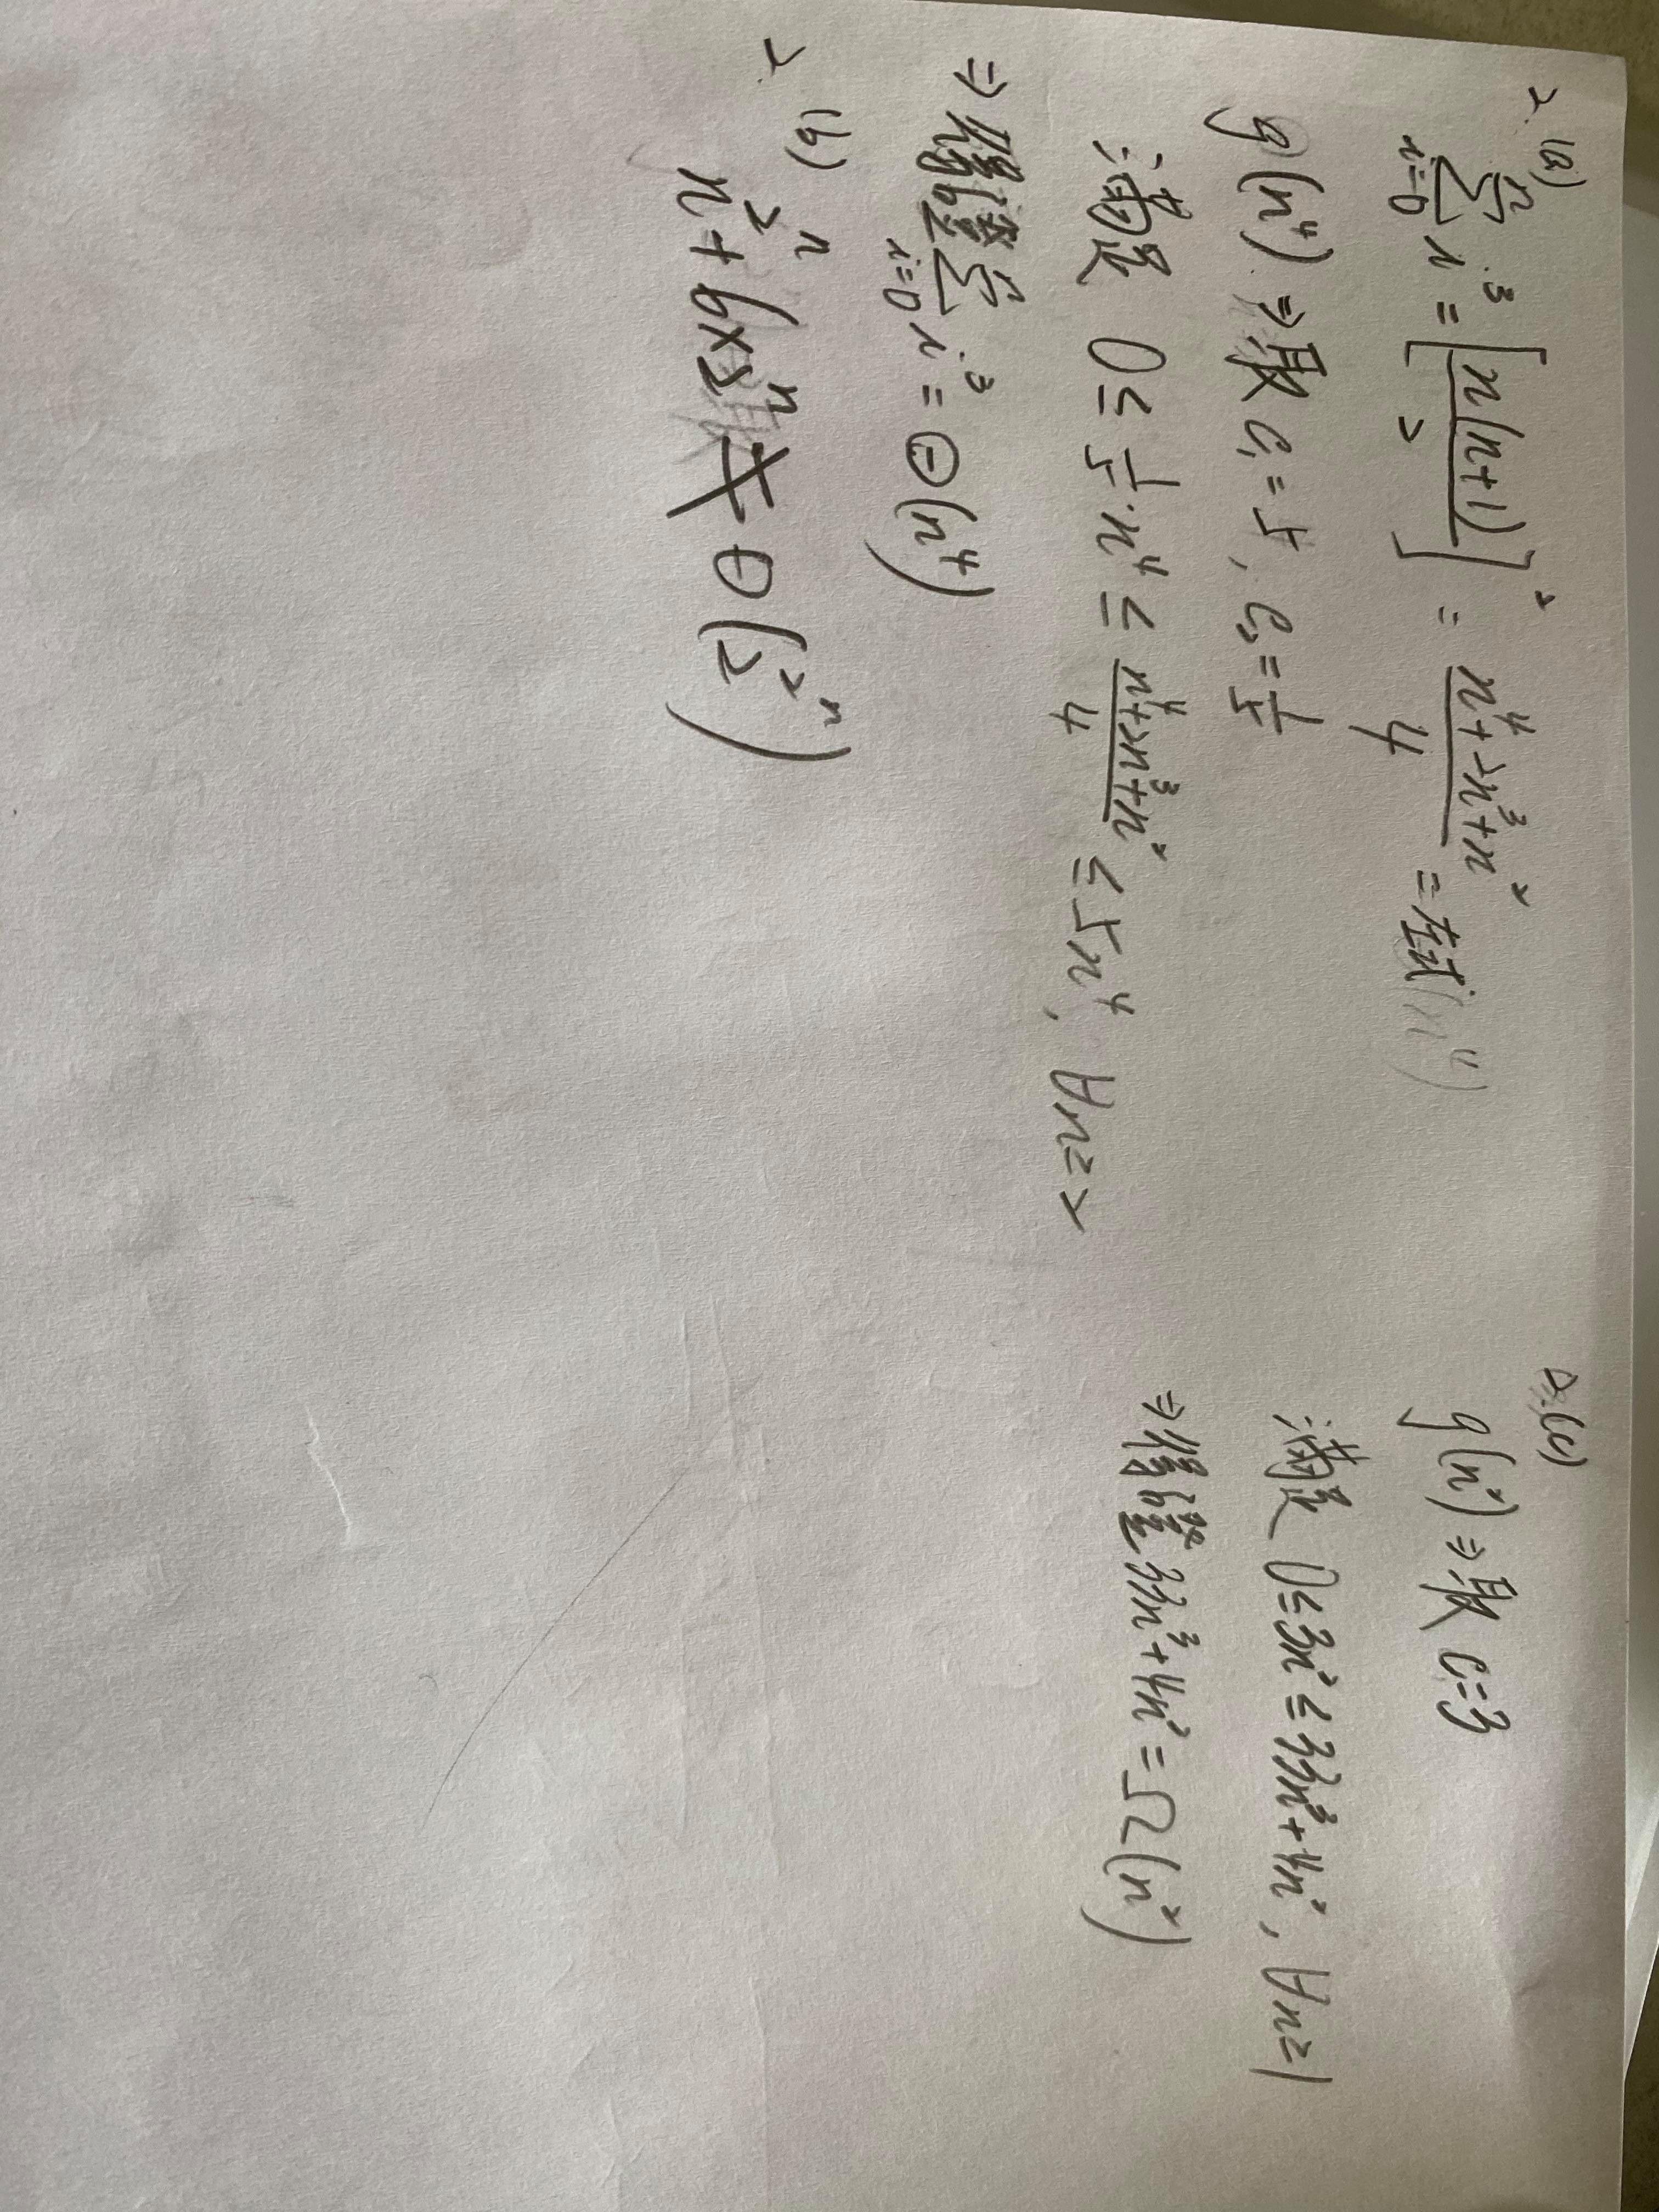 2. (a)
\sum_{i=0}^{n} i^3 = [\frac{n(n+1)}{2}]^2 = \frac{n^4+2n^3+n^2}{4} = 左式
g(n^4) ⇒ 取 c_1 = 5, c_2 = \frac{1}{5}
滿足 0 ≤ \frac{1}{5} · n^4 ≤ \frac{n^4+2n^3+n^2}{4} ≤ 5n^4, ∀n ≥ 2
⇒ 得證 \sum_{i=0}^{n} i^3 = Θ(n^4)
2. (b)
n^{2^n} + 6×2^n ≠ Θ(2^{2^n})
2. (c)
g(n^2) ⇒ 取 c = 3
滿足 0 ≤ 3n^2 ≤ 33n^3 + 4n^2, ∀n ≥ 1
⇒ 得證 33n^3 + 4n^2 = Ω(n^2)